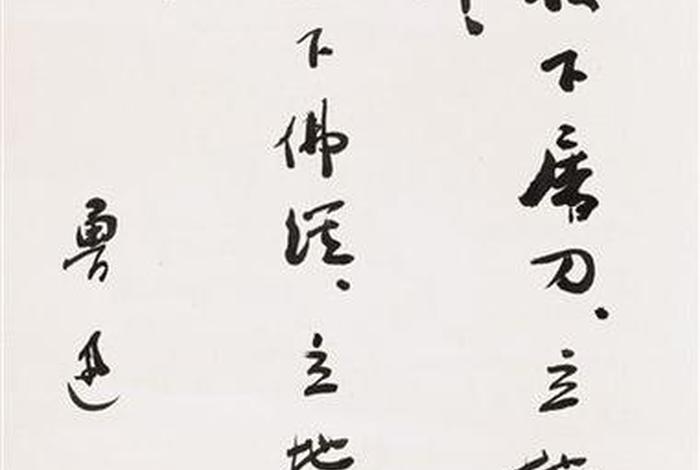 下屠刀、立
下佛經、立地
魯迅